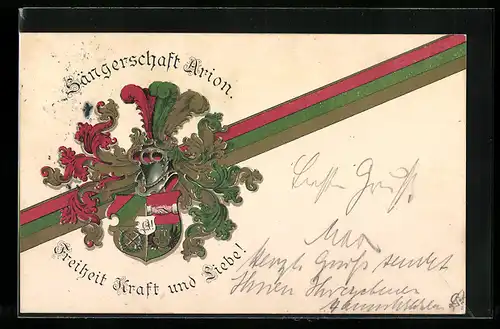 Sängerschaft Arion.
Freiheit Kraft und Liebe!
Besten Gruß
Max
Herzl. Gruß sendet
Ihnen Ihr ergebener